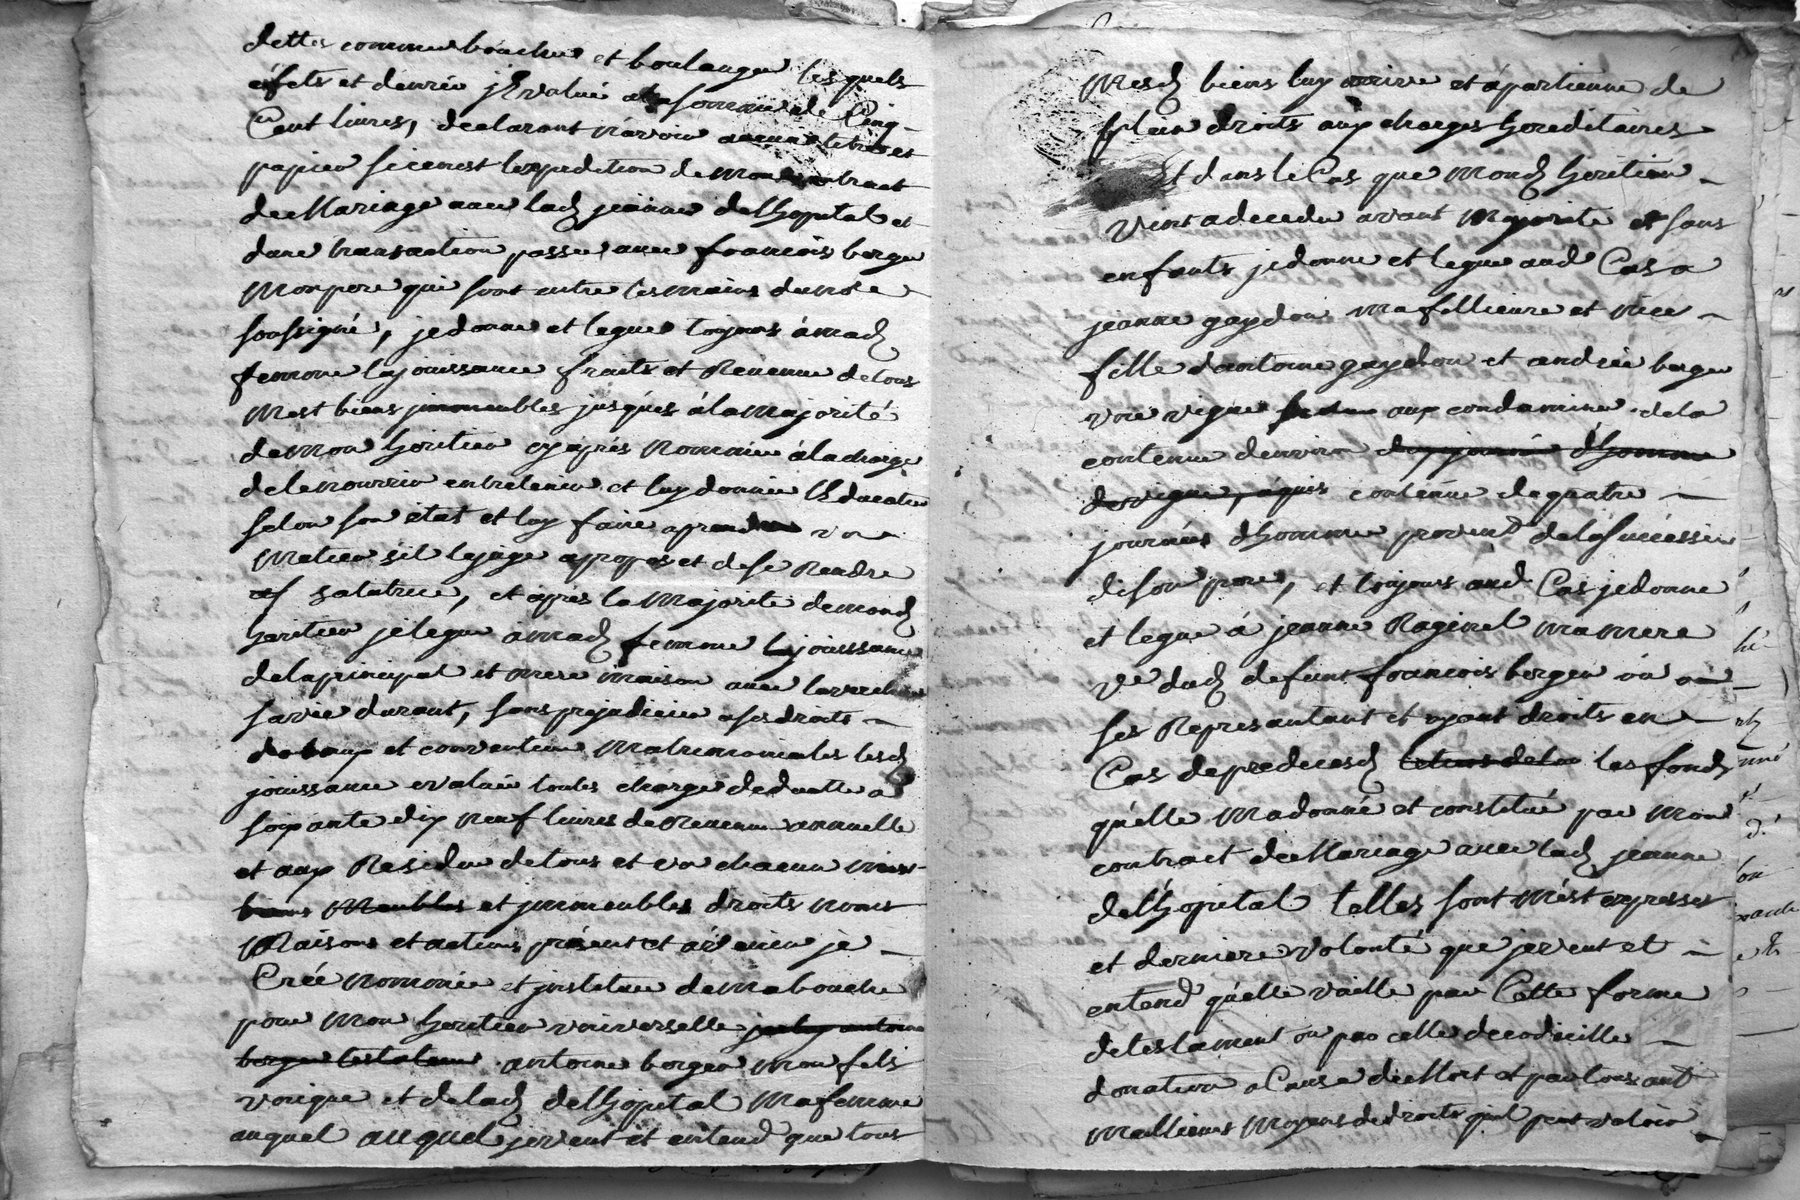 dettes comme boucher et boulanger lesquels
éfets et denrée j'Evalue a la somme de Cinq
Cent livres, declarant n'avoir aucun titre et
papier si cenest lexpedition de mon contract
de Mariage avec lad jeanne delhopital et
dune transaction passée avec francois berger
Monpere qui sont entre les mains du no.re
soussigné, je donne et legue toujours a mad
femme la jouissance fruits et Revenu de tous
Mest biens jmmeubles jusqu'es á la Majorité
de Mon heritier cy aprés Nommée á la charge
de le nourrir entretenir et luy donnée lEducation
selon son état et luy faire aprendre vn
Metier s'il le juge apropos et de se Rendre
et apres la Majorité de mond
heritier je legue á mad femme la jouissance
de la principal et mere Maison avec
sa vie durant, sans prejudicier a ses droits
et convention Matrimoniales lesd
jouissance evaluée toutes charge deduitte a
soixante dix neuf livres de Revenu annuelle
et aux Residu de tous et vn chacun mest
biens Meubles et jmmeubles droits noms
Raisons et actions présent et avenir je
Créé nommée et jnstitue de Mabouche
pour Mon heritier vniverselle
berger testateur antoine berger Mon fils
vnique et de lad delhopital Ma femme
auquel auquel je veut et entend que tous
Mesd biens luy arrive et apartienne de
plein droits aux charges hereditaires
Et dans le Cas que Mond heritier
vint a deceder avant Majorité et sans
enfants je donne et legue aud Cas a
jeanne gaydon Ma fillieure et niece
fille dantoine gaydon et andrée berger
vne vigne aux condamine de la
contenue denviron d'homme
de vigne, contenue de quatre
journées d'homme provend de la Succéssion
de son pere, et toujours aud Cas je donne
et legue á jeanne Raginel Ma Mere
Ve dud defunt francois berger ou a
ses Representant et ayant droits en
Cas de predecesd les fonds
qu'elle Madonné et constitué par Mon
contract de Mariage avec lad jeanne
delhopital telles sont Mést expresses
et derniere volonté que je veut et
entend qu'elle vaille par Cette forme
de testament ou par celle de codicille
donation a Cause de Mort et par tous aut
Meillieurs Moyens de droits quil peut valoir